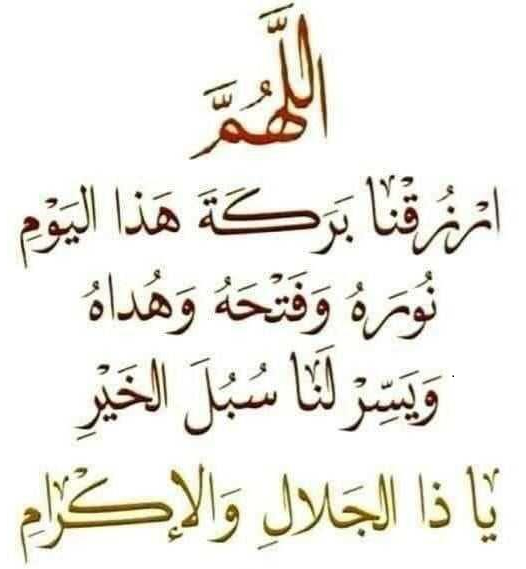 اللَّهُمَّ
ارْزُقْنا بَرَكَةَ هَذا اليَوْمِ
نُورَهُ وَفَتْحَهُ وَهُداهُ
وَيَسِّرْ لَنا سُبُلَ الخَيْرِ
يا ذا الجَلالِ وَالإكْرَامِ